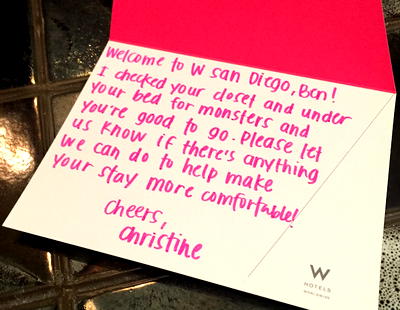 Welcome to W San Diego, Ben!
I checked your closet and under
your bed for monsters and
you're good to go. Please let
us know if there's anything
we can do to help make
your stay more comfortable!
Cheers,
Christine
W
HOTELS
WORLDWIDE